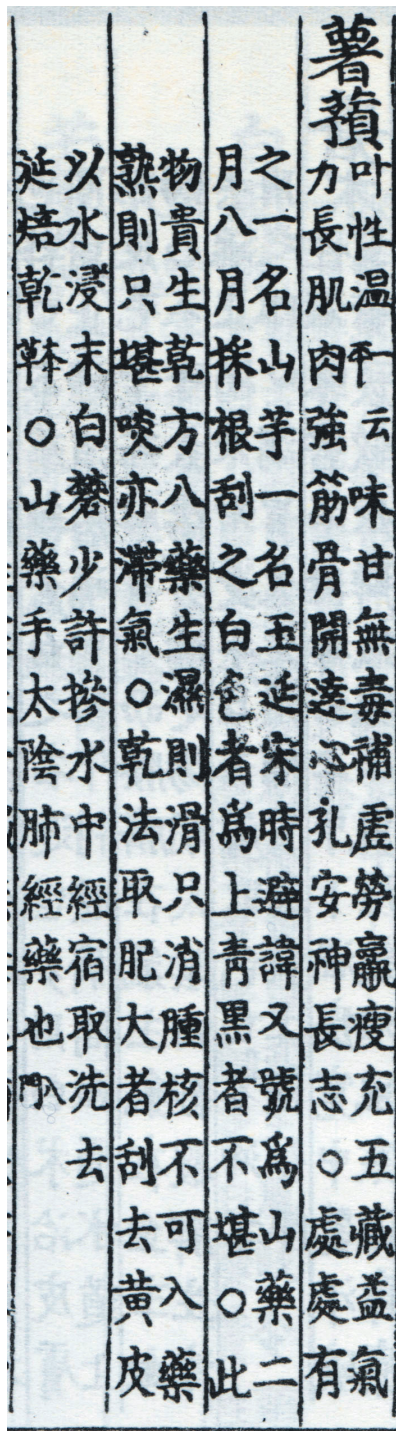 薯蕷
마性溫平一云味甘無毒補虛勞羸瘦充五藏益氣
力長肌肉強筋骨開達心孔安神長志○處處有
之一名山芋一名玉延宋時避諱又號爲山藥二
月八月採根刮之白色者爲上靑黑者不堪○此
物貴生乾方入藥生濕則滑只消腫核不可入藥
熟則只堪啖亦滯氣○乾法取肥大者刮去黃皮
以水浸末白礬少許摻水中經宿取洗去
延焙乾本草○山藥手太陰肺經藥也入門